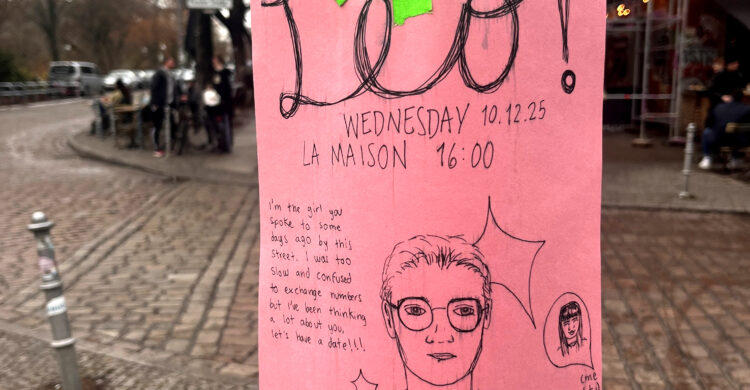 Leo!
WEDNESDAY 10.12.25
LA MAISON 16:00
I'm the girl you
spoke to some
days ago by this
street. I was too
slow and confused
to exchange numbers
but I've been thinking
a lot about you,
let's have a date!!!
(me